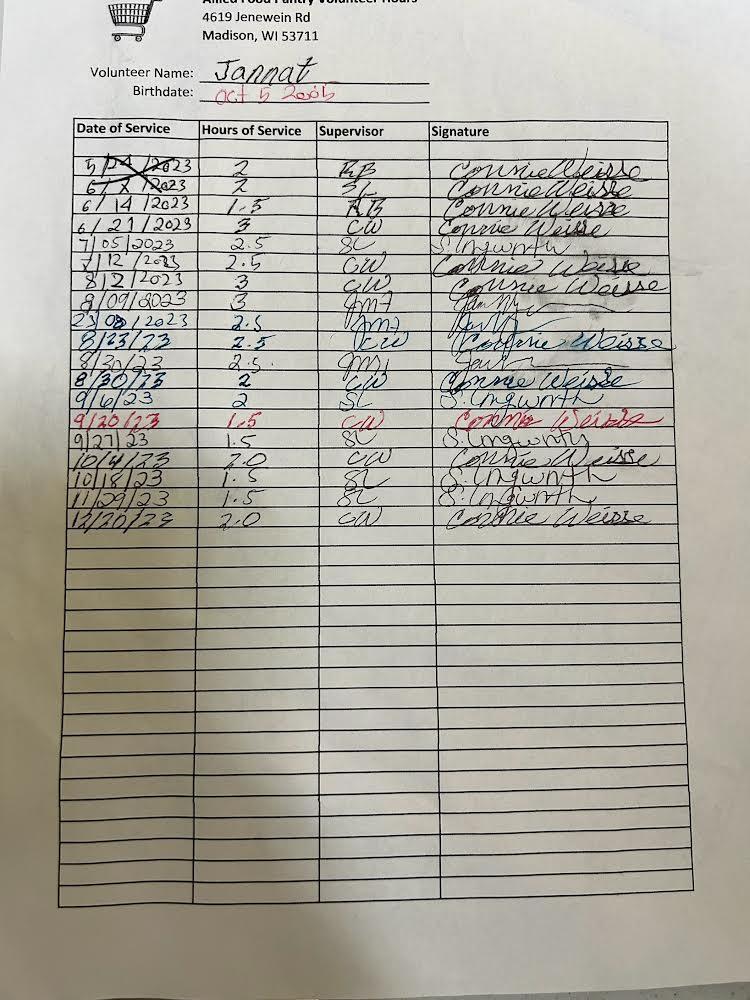 Allied Food Pantry Volunteer Hours
4619 Jenewein Rd
Madison, WI 53711
Volunteer Name: Jannat
Birthdate: Oct 5 2005
Date of Service Hours of Service Supervisor Signature
5/24/2023 2 RB Connie Weisse
6/ /2023 2 SL Connie Weisse
6/14/2023 1.5 RB Connie Weisse
6/21/2023 3 CW Connie Weisse
7/05/2023 2.5 SL S. Longworth
7/12/2023 2.5 CW Connie Weisse
8/2/2023 3 CW Connie Weisse
8/09/2023 3
23/08/2023 2.5
8/23/23 2.5 CW Connie Weisse
8/30/23 2.5
8/30/23 2 CW Connie Weisse
9/6/23 2 SL S. Longworth
9/20/23 1.5 CW Connie Weisse
9/27/23 1.5 SL S. Longworth
10/4/23 2.0 CW Connie Weisse
10/18/23 1.5 SL S. Longworth
11/29/23 1.5 SL S. Longworth
12/20/23 2.0 CW Connie Weisse